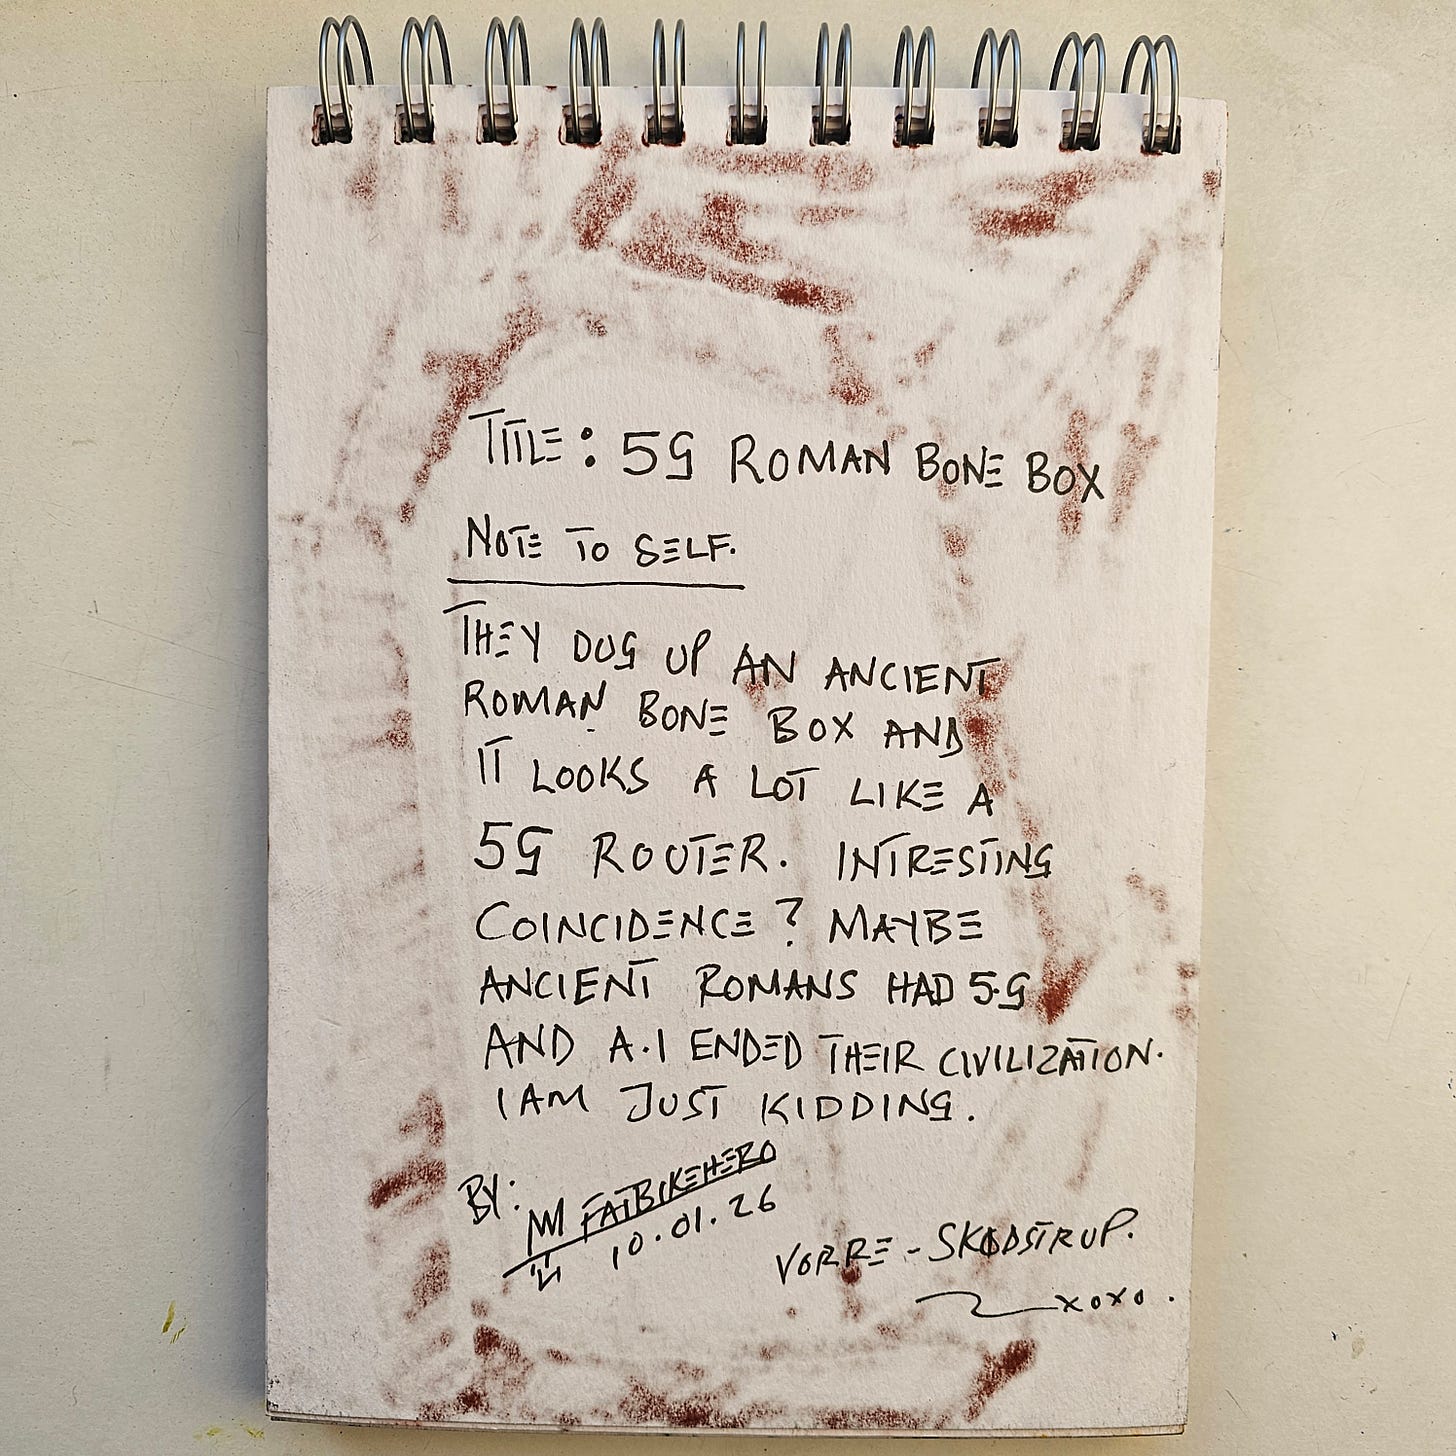 TITLE: 5G ROMAN BONE BOX
NOTE TO SELF.
THEY DUG UP AN ANCIENT
ROMAN BONE BOX AND
IT LOOKS A LOT LIKE A
5G ROUTER. INTRESTING
COINCIDENCE? MAYBE
ANCIENT ROMANS HAD 5G
AND A.I ENDED THEIR CIVILIZATION.
I AM JUST KIDDING.
BY: FATBIKEHERO
10.01.26
VORRE-SKØDSTRUP.
xoxo.